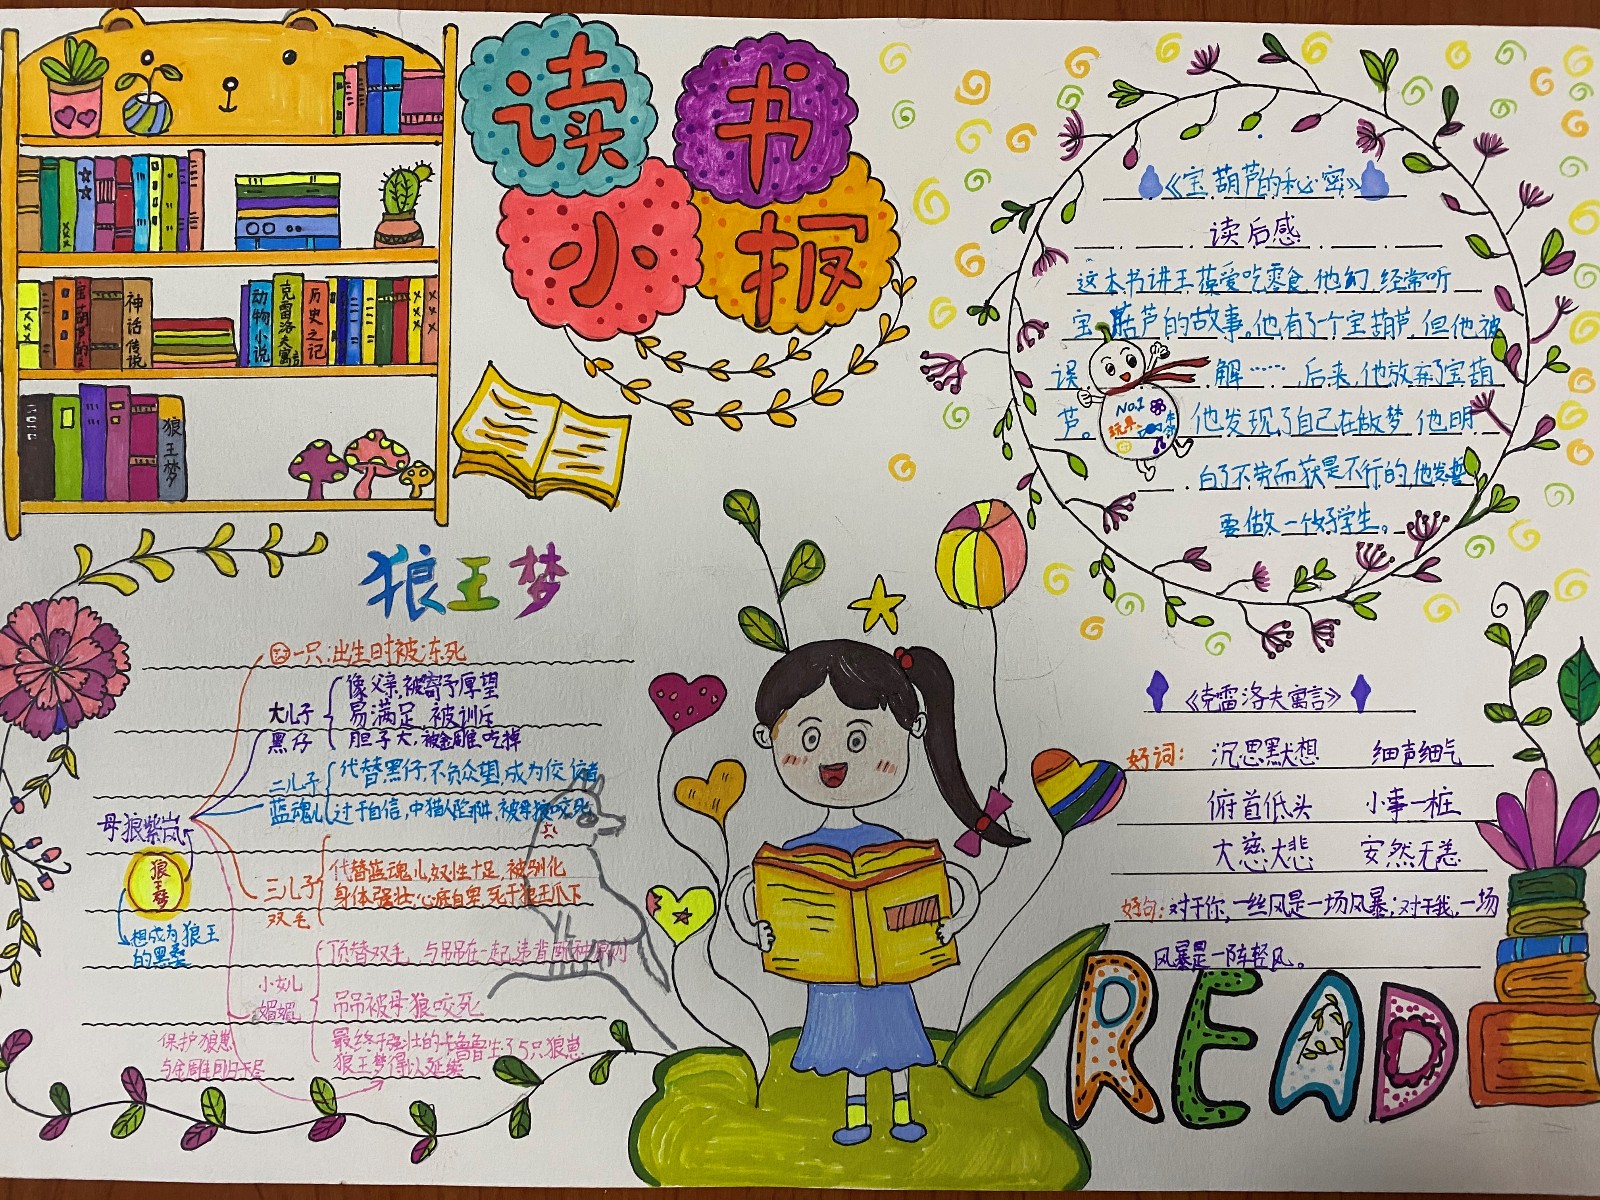 读书
小报
神话传说
动物小说
克雷洛夫寓言
历史之记
狼王梦
《宝葫芦的秘密》
读后感
这本书讲王葆爱吃零食,他们经常听
宝葫芦的故事。他有了个宝葫芦,但他被
误解……,后来,他放弃了宝葫
芦。他发现了自己在做梦,他明
白了不劳而获是不行的,他发誓
要做一个好学生。
NO.1
狼王梦
一只:出生时被冻死
大儿子
黑仔
像父亲,被寄予厚望
易满足,被训斥
胆子大,被金雕吃掉
二儿子
蓝魂儿
代替黑仔,不负众望,成为佼佼者
过于自信,中猎人陷阱,被母狼咬死
母狼紫岚
狼王梦
想成为狼王
的黑桑
三儿子
双毛
代替蓝魂儿,奴性十足,被驯化
身体强壮,心底自卑,死于狼王爪下
小女儿
媚媚
顶替双毛,与吊吊在一起,违背
吊吊被母狼咬死
最终于强壮的卡鲁鲁生了5只狼崽
狼王梦得以延续
保护狼崽
与金雕同归于尽
《克雷洛夫寓言》
好词: 沉思默想 细声细气
俯首低头 小事一桩
大慈大悲 安然无恙
好句:对于你,一丝风是一场风暴;对于我,一场
风暴是一阵轻风。
READ